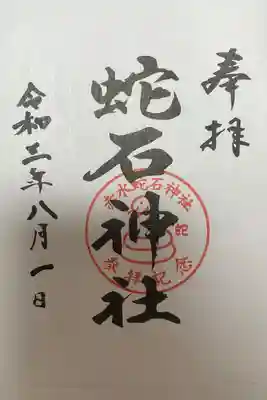 奉拝
蛇石神社
令和三年八月一日
赤水蛇石神社
参拝記念